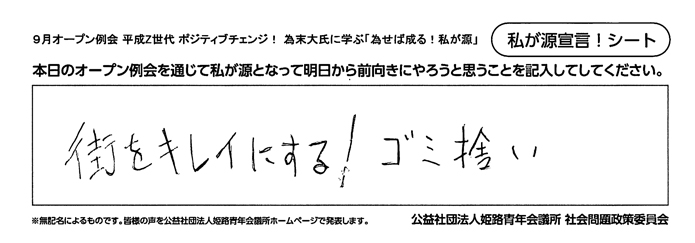 9月オープン例会 平成Z世代 ポジティブチェンジ! 為末大氏に学ぶ「為せば成る!私が源」 私が源宣言!シート
本日のオープン例会を通じて私が源となって明日から前向きにやろうと思うことを記入してしてください。
街をキレイにする! ゴミ捨い
※無記名によるものです。皆様の声を公益社団法人姫路青年会議所ホームページで発表します。 公益社団法人姫路青年会議所 社会問題政策委員会